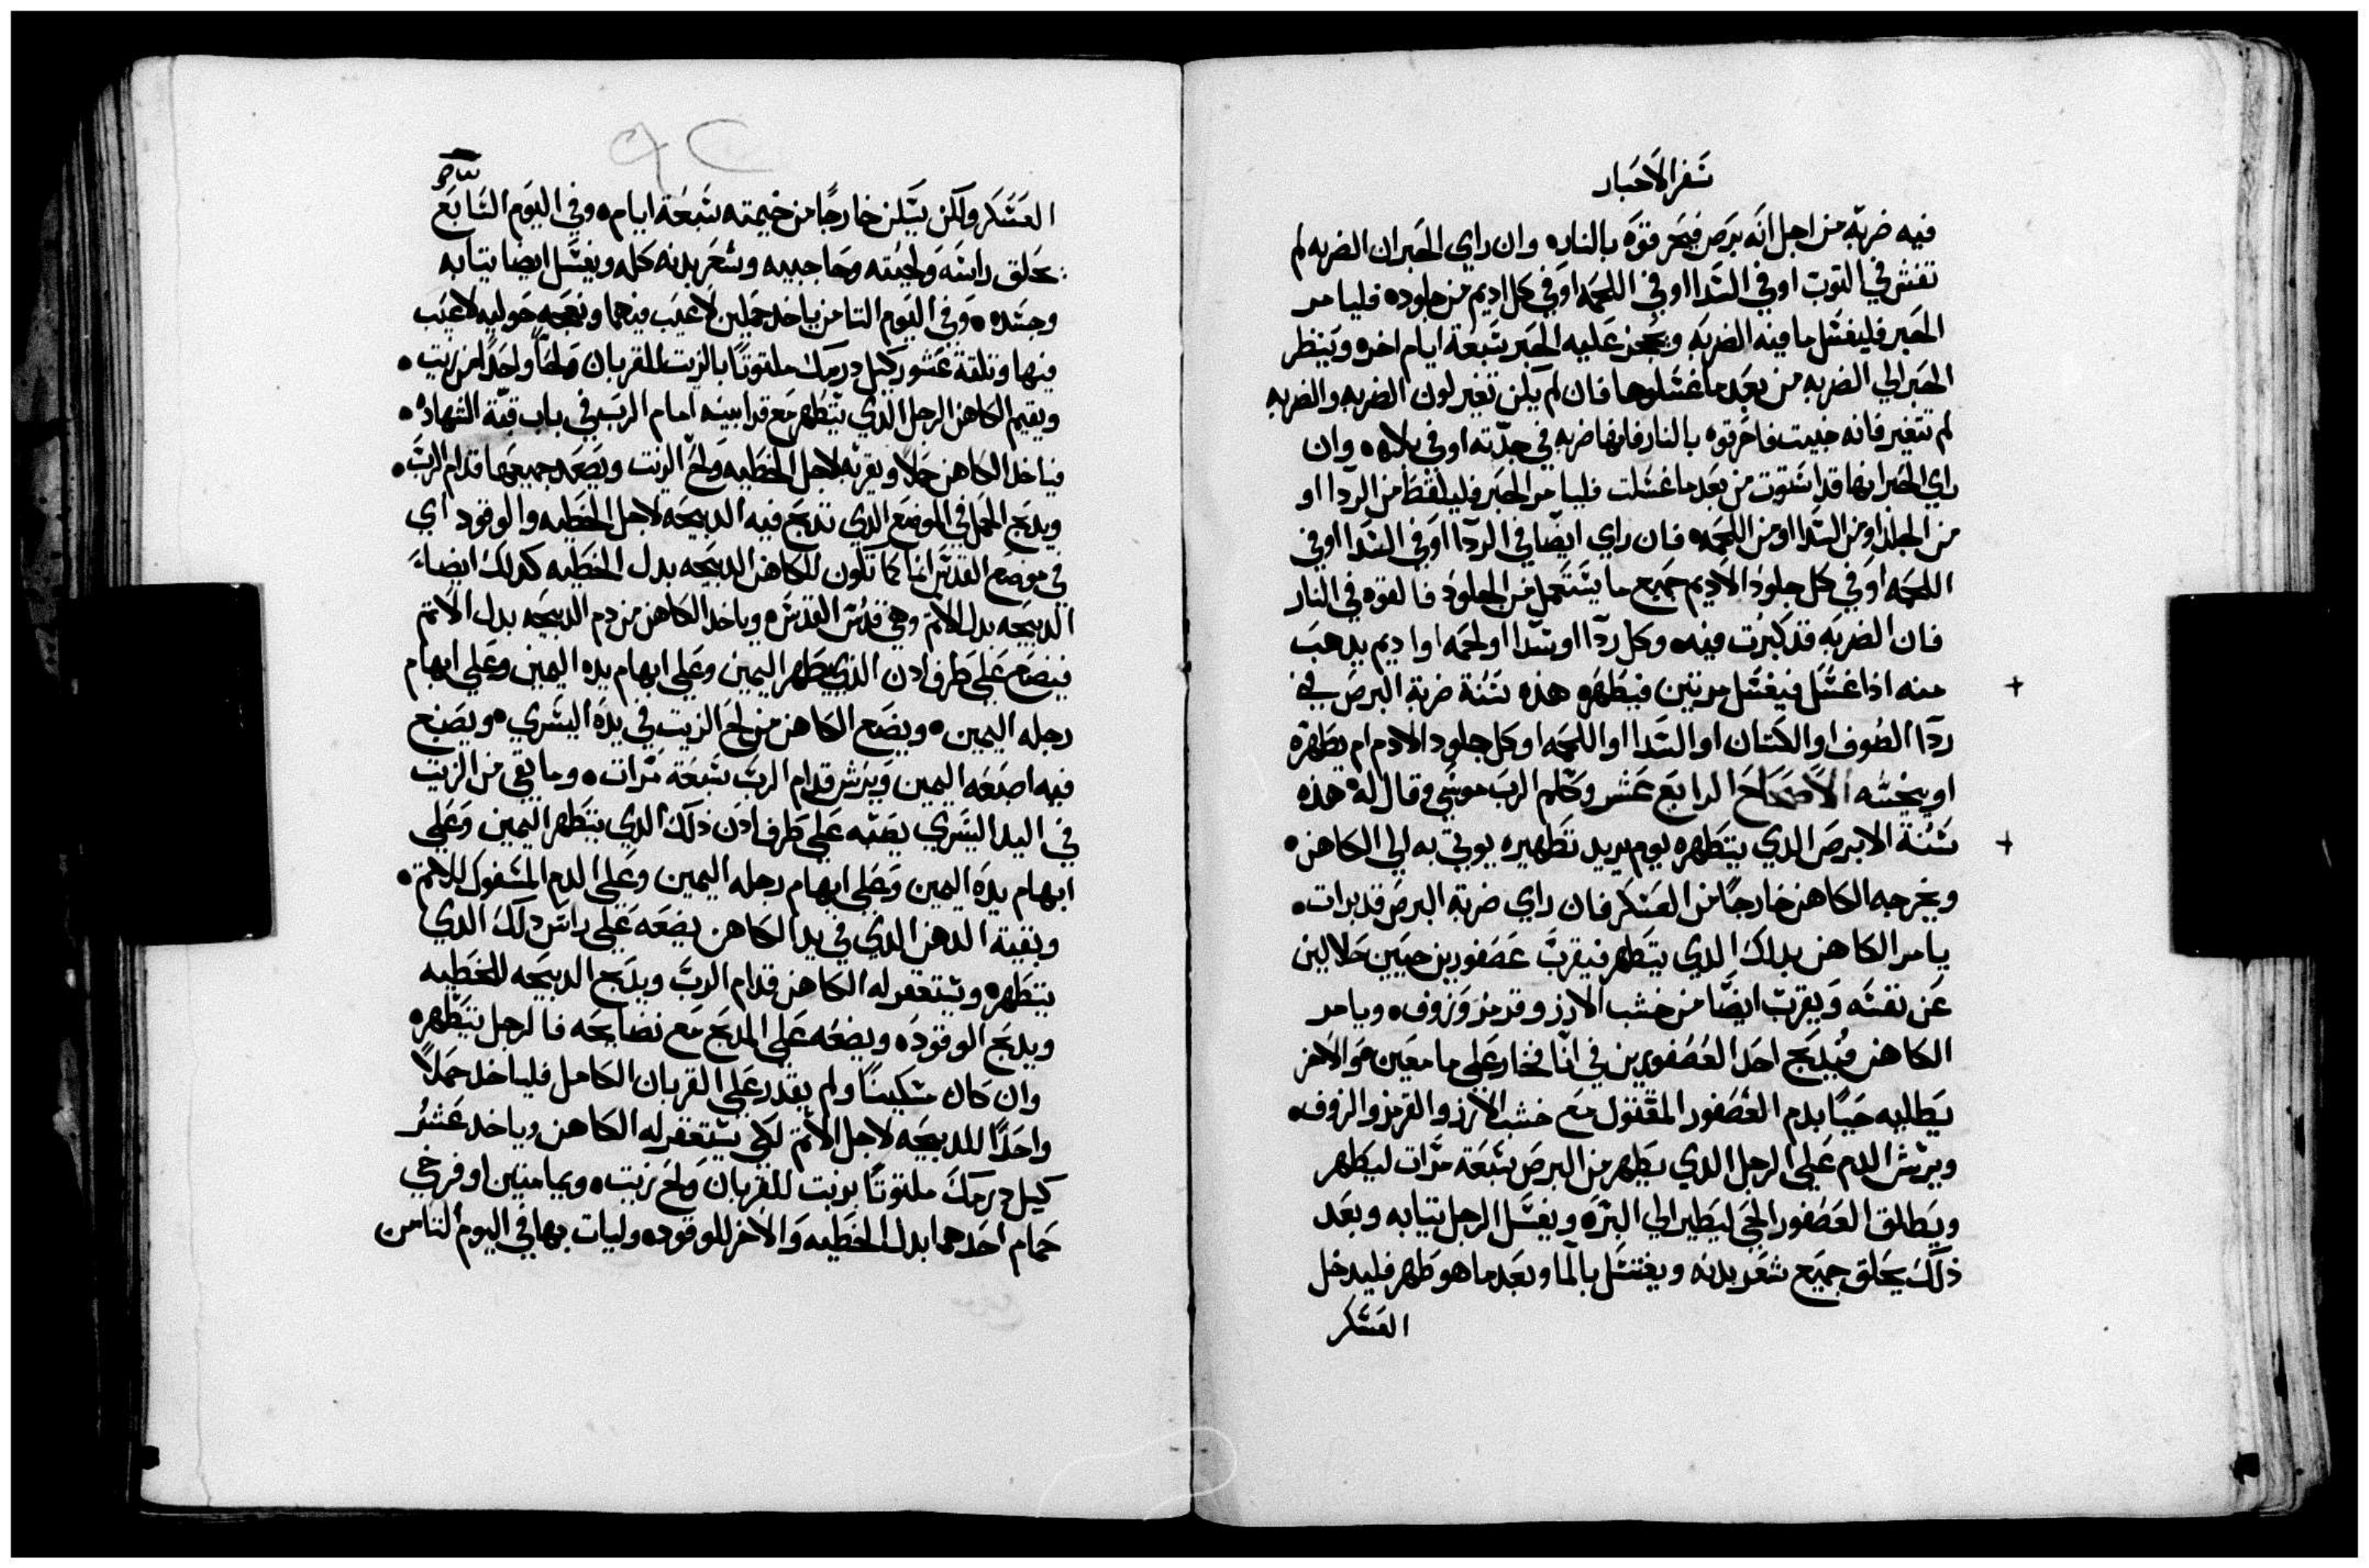 سفر الاحبار
فيه ضربة من اجل انه برص فيحرقوه بالنار۰ وان راي الحبر ان الضربه لم
تفش في التوب او في السدا او في اللحمه او في كل اديم من جلود۰ فليامر
الحبر فليغسل ما فيه الضربه ويحجز عليه الحبر سبعة ايام اخر۰ وينظر
الحبر الي الضربه من بعد ما غسلوها فان لم يكن تغير لون الضربه والضربه
لم تتغير فانه خبيت فاحرقوه بالنار فانها ضربه في جدته او في بلاه۰ وان
راي الحبر انها قد استوت من بعد ما غسلت فليامر الحبر فليلقط من الردا او
من الجلد او من السدا او من اللحمه۰ فان راي ايضا في الردا او في السدا او في
اللحمه او في كل جلود الاديم جميع ما يستعمل من الجلود فالقوه في النار
فان الضربه قد كبرت فيه۰ وكل ردا او سدا او لحمه او اديم يدهب
منه اذا غسل فيغسل مرتين فيطهر۰ هذه سنة ضربة البرص في
ردا الصوف او الكتان او السدا او اللحمه او كل جلود الادم ام يطهره
او ينجسه الاصحاح الرابع عشر وكلم الرب موسي وقال له هذه
سنة الابرص الدي يتطهر۰ يوم يريد تطهيره يوتي به الي الكاهن۰
ويخرجه الكاهن خارجا من العسكر فان راي ضربة البرص قد برات۰
يامر الكاهن بدلك الدي يتطهر فيقرب عصفورين حيين حلالين
عن نفسه ويقرب ايضا من خشب الارز وقرمز وزوف۰ ويامر
الكاهن فيدبح احد العصفورين في انا فخار علي ما معين هو والاخر
يطليه حيا بدم العصفور المقتول مع خشب الارز والقرمز والزوف۰
ويرش الدم علي الرجل الدي يطهر من البرص سبعة مرات ليطهر
ويطلق العصفور الحي ليطير الي البره ويغسل الرجل تيابه وبعد
ذلك يحلق جميع شعر بدنه ويغتسل بالما وبعد ما هو طهر فليدخل
العسكر
العسكر ولكن يسكن خارجا من خيمته سبعة ايام۰ وفي اليوم السابع
يحلق راسه ولحيته وحاجبيه وشعر بدنه كله ويغسل ايضا تيابه
وجسده۰ وفي اليوم التامن ياخد حملين لا عيب فيهما ونعجه حوليه لا عيب
فيها وتلتة عشور كيل درمك ملتوتا بالزيت للقربان ولحا واحدا من زيت۰
ويقيم الكاهن الرجل الدي يتطهر مع قرابينه امام الرب في باب قبة الشهاده۰
فياخد الكاهن حملا ويقربه لاجل الخطيه ولح الزيت ويصعد جميعها قدام الرب۰
ويدبح الحمل في الموضع الدي تدبح فيه الدبيحه لاجل الخطيه والوقود اي
في موضع القدس انما كما تكون للكاهن الدبيحه بدل الخطيه كدلك ايضا
الدبيحه بدل الاتم وهي قدس القدس۰ وياخد الكاهن من دم الدبيحه بدل الاتم
فيضع علي طرف ادن الدي يتطهر اليمين وعلي ابهام يده اليمين وعلي ابهام
رجله اليمين۰ ويضع الكاهن من لح الزيت في يده اليسري۰ ويصبع
فيه اصبعه اليمين ويرش قدام الرب سبعة مرات۰ وما بقي من الزيت
في اليد اليسري يصبه علي طرف ادن ذلك الدي يتطهر اليمين وعلي
ابهام يده اليمين وعلي ابهام رجله اليمين وعلي الدم المسفوك للاتم۰
وبقية الدهن الدي في يد الكاهن يضعه علي راس دلك الدي
يتطهر۰ ويستغفر له الكاهن قدام الرب ويدبح الدبيحه للخطيه
ويدبح الوقود۰ ويضعه علي المدبح مع نضايحه فالرجل يتطهر۰
وان كان مسكينا ولم يقدر علي القربان الكامل فلياخد حملا
واحدا للدبيحه لاجل الاتم لكي يستغفر له الكاهن وياخد عشر
كيل درمك ملتوتا بزيت للقربان ولح زيت۰ ويمامتين او فرخي
حمام احدهما بدل الخطيه والاخر للوقود۰ وليات بها في اليوم التامن